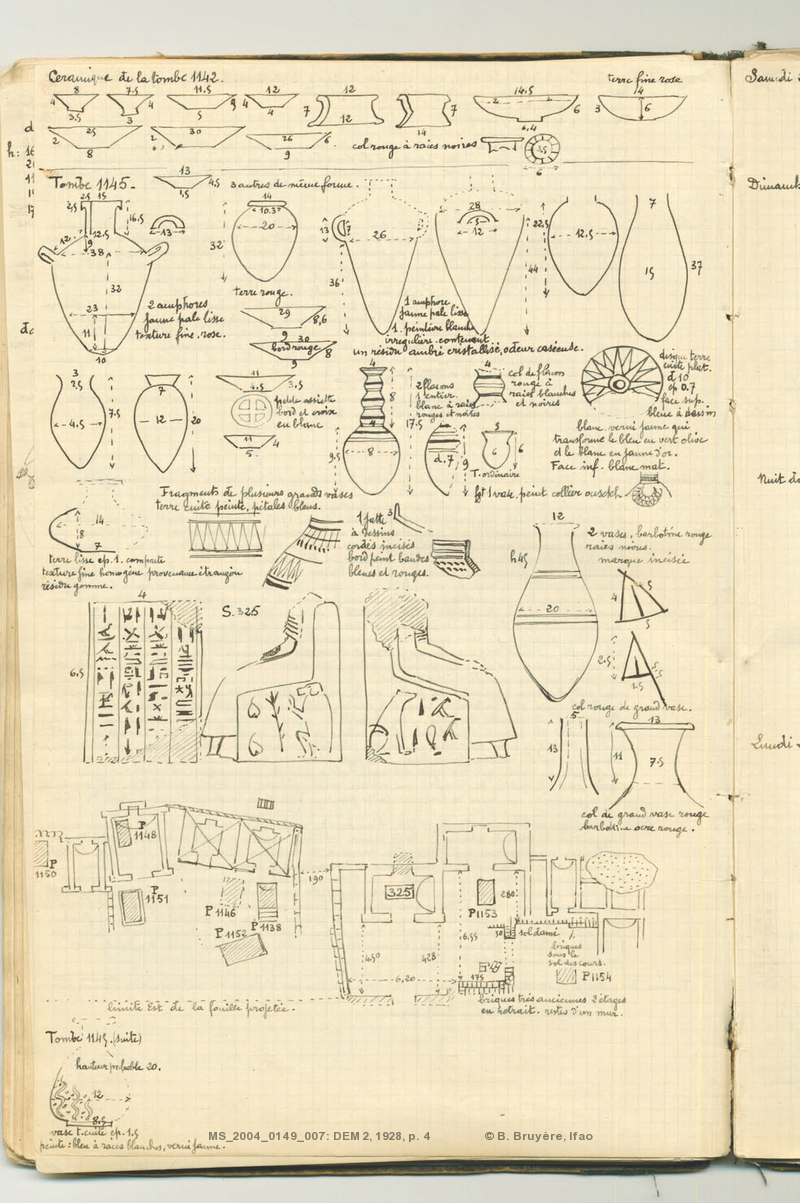 Ceramique de la tombe 1142.
terre fine rose
8 7.5 11.5 12 12 14.5 14
4 4 9 4 7 7 2 6 3 6
3.5 3 5 4 12 14 6,4
25 30 26
2 2 6
8 9
col rouge à raies noires
3.5
6
Tombe 1145.
13
4,5
3 autres de même forme.
2.5 15
2,5
16.5
12.5
12
9
38
32
23
11
10
13
2 amphores
jaune pale lisse
texture fine. rose.
14
10.3
20
32
terre rouge.
29
8,6
9
30
bord rouge
8
9
13
7
26
36
28
5
12
22.5
44
1 amphore
jaune pale lisse
1. peinture blanche
irregulière. contenant
un résidu ambré cristallisé, odeur caséeuse.
1
12.5
7
15
37
disque terre
cuite plat.
d 10
ep 0.7
face sup.
bleue à dessin
blanc. verni jaune qui
transforme le bleu en vert olive
et le blanc en jaune d'or.
Face inf. blanc mat.
3
2.5
4.5
7.5
7
12
20
11
4.5
3.5
petite assiette
bord et croix
en blanc
11
4
5
4
8
17.5
9.5
8
2 flacons
1 entier
blanc à raies
rouges et noires
col de flacon
rouge à
raies blanches
et noires
d. 7
9
5
6
6
T. ordinaire
fgt 1 vase, peint collier ousekh
Fragments de plusieurs grands vases
terre cuite peinte, pétales bleus.
14
8
7
terre lisse ep. 1. compacte
texture fine homogène provenance étrangère
résidu gomme.
1 patte
3
à dessins
cordés incisés
bord peint bandes
bleues et rouges.
12
h 45
20
2 vases, barbotine rouge
raies noires.
marque incisée
4
5
5
2.5
5.5
1.5
4
6.5
S. 325
col rouge de grand vase.
5
13
13
11
7.5
col de grand vase rouge
barbotine ocre rouge.
P 1148
P 1150
P 1151
P 1146
P 1138
P 1152
190
325
P 1153
280
6.55
50
sol damé
briques
sous le
sol des cours.
P 1154
450
428
6,20
175
briques très anciennes 2 étages
en retrait. restes d'un mur.
limite Est de la fouille projetée.
Tombe 1145. (suite)
hauteur probable 20.
12
8.5
vase t. cuite ep. 1.5
peinte: bleu à raies blanches, verni jaune.
MS_2004_0149_007: DEM 2, 1928, p. 4 © B. Bruyère, Ifao
Samedi
Dimanch
Nuit d
Lundi